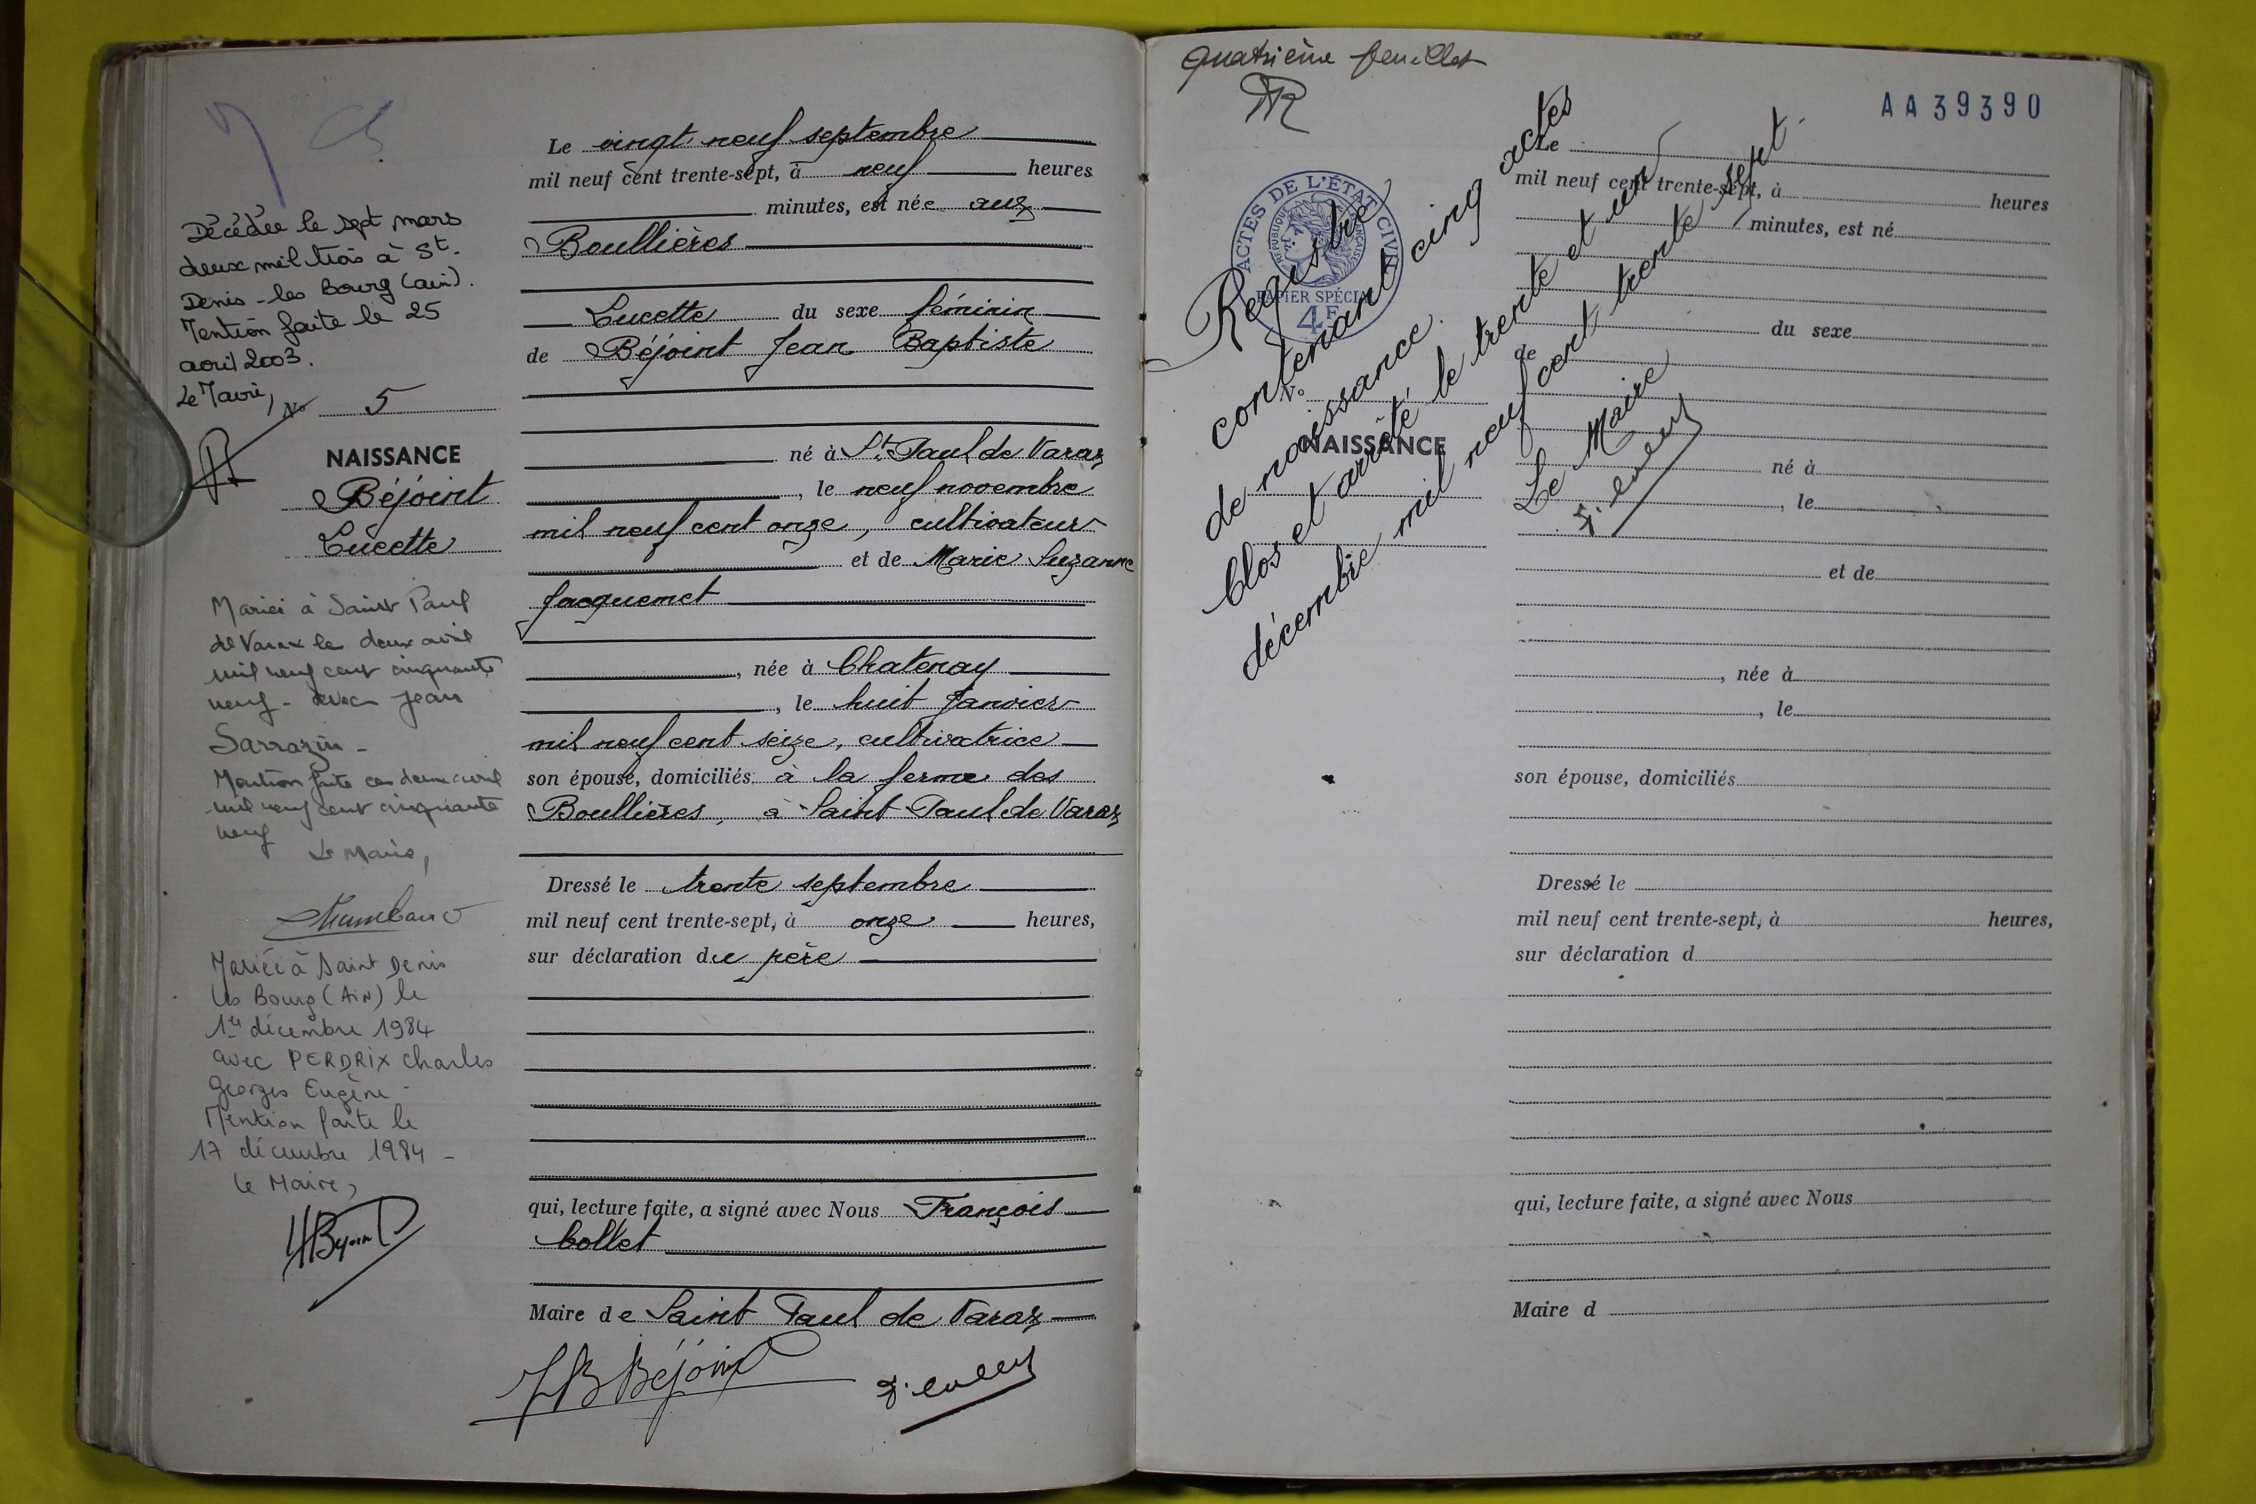 Décédée le sept mars
deux mil trois à St.
Denis-les Bourg (ain).
Mention faite le 25
avril 2003.
Le Maire,
No 5
NAISSANCE
Béjoint
Lucette
Mariée à Saint Paul
de Varax le deux avril
mil neuf cent cinquante
neuf - avec Jean
Sarrazin -
Mention faite ce deux avril
mil neuf cent cinquante
neuf
Le Maire,
Mariée à Saint Denis
les Bourg (AIN) le
1er décembre 1984
avec PERDRIX Charles
Georges Eugène -
Mention faite le
17 décembre 1984 -
Le Maire,
Le vingt neuf septembre
mil neuf cent trente-sept, à neuf heures
minutes, est née aux
Boullières
Lucette du sexe féminin
de Béjoint Jean Baptiste
né à St Paul de Varax
, le neuf novembre
mil neuf cent onze, cultivateur
et de Marie Suzanne
Jacquemet
, née à Chatenay
, le huit Janvier
mil neuf cent seize, cultivatrice
son épouse, domiciliés à la ferme des
Boullières, à Saint Paul de Varax
Dressé le trente septembre
mil neuf cent trente-sept, à onze heures,
sur déclaration du père
qui, lecture faite, a signé avec Nous François
Collet
Maire de Saint Paul de Varax
JB Béjoint
quatrième feuillet
AA39390
ACTES DE L'ÉTAT CIVIL
RÉPUBLIQUE FRANÇAISE
PAPIER SPÉCIAL
4F
Registre
contenant cinq actes
de naissance.
Clos et arrêté le trente et un
décembre mil neuf cent trente sept.
Le Maire
No
NAISSANCE
Le
mil neuf cent trente-sept, à heures
minutes, est né
du sexe
de
né à
, le
et de
, née à
, le
son épouse, domiciliés
Dressé le
mil neuf cent trente-sept, à heures,
sur déclaration d
qui, lecture faite, a signé avec Nous
Maire d